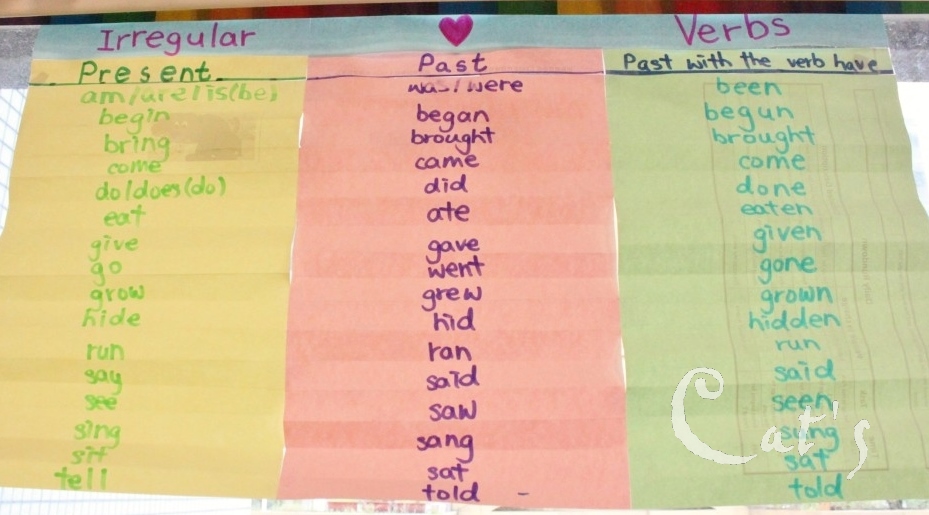 Irregular Verbs
Present Past Past with the verb have
am/are/is(be) was/were been
begin began begun
bring brought brought
come came come
do/does(do) did done
eat ate eaten
give gave given
go went gone
grow grew grown
hide hid hidden
run ran run
say said said
see saw seen
sing sang sung
sit sat sat
tell told told
Cat's